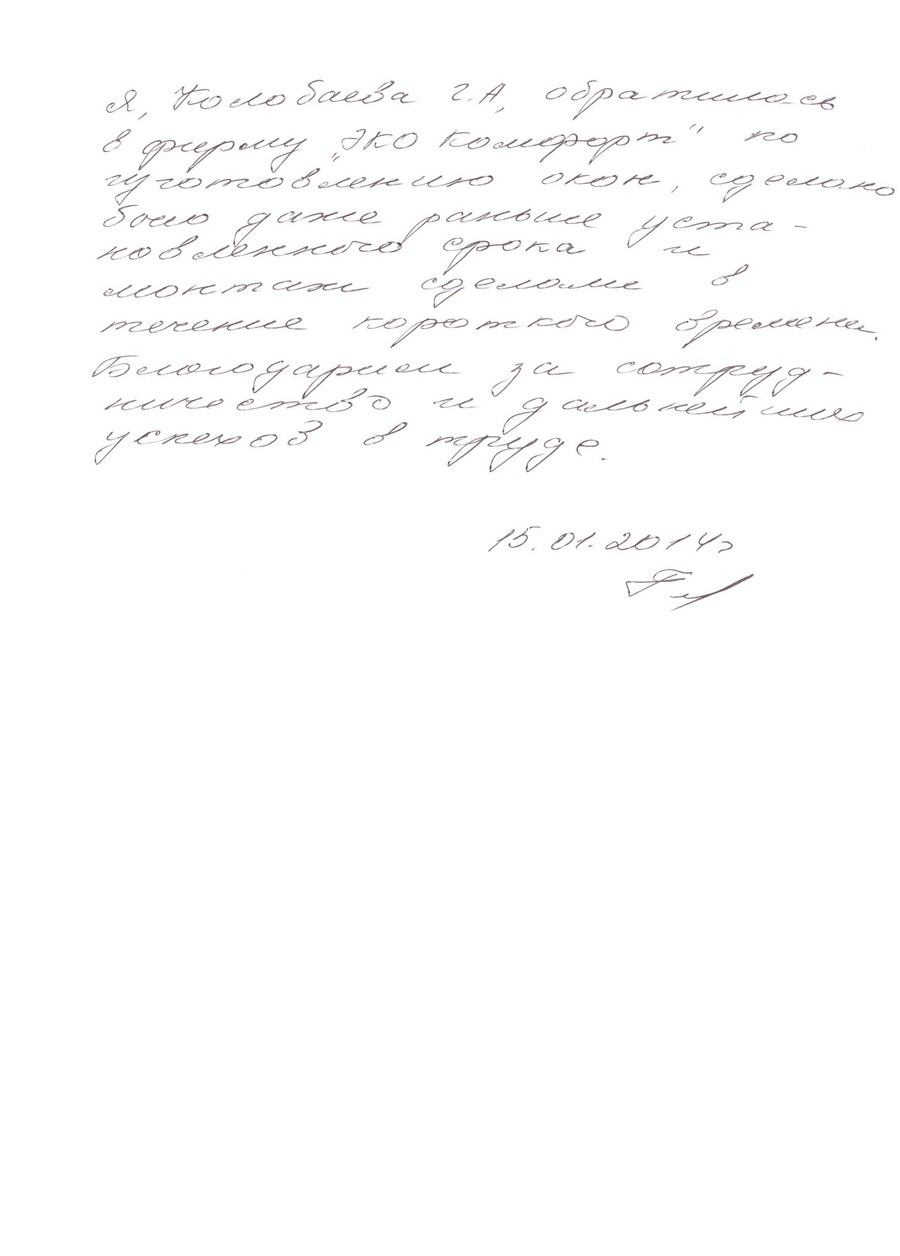 Я, Колобаева Г.А, обратилась
в фирму „Эко Комфорт" по
изготовлению окон, сделано
было даже раньше уста-
новленного срока и
монтаж сделали в
течение короткого времени.
Благодарим за сотруд-
ничество и дальнейших
успехов в труде.
15.01.2014г